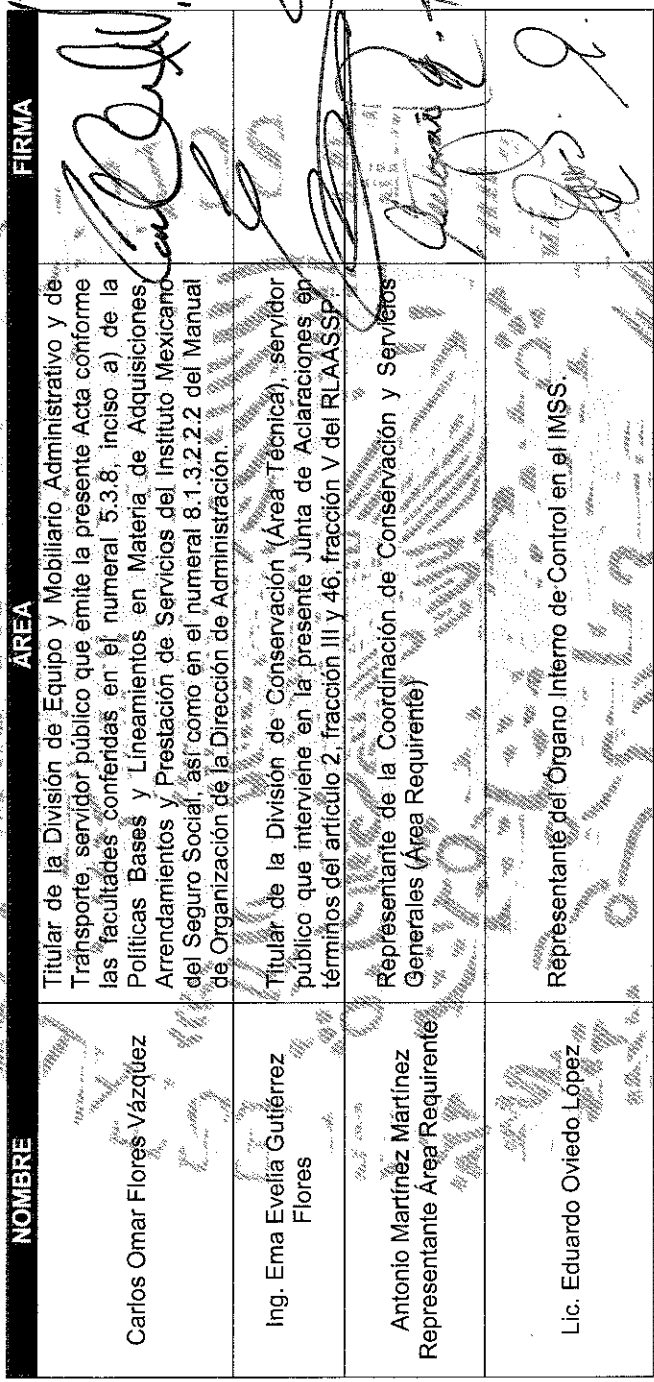 NOMBRE ÁREA FIRMA
Carlos Omar Flores Vázquez
Titular de la División de Equipo y Mobiliario Administrativo y de
Transporte, servidor público que emite la presente Acta conforme
las facultades conferidas en el numeral 5.3.8, inciso a) de la
Políticas Bases y Lineamientos en Materia de Adquisiciones,
Arrendamientos y Prestación de Servicios del Instituto Mexicano
del Seguro Social, así como en el numeral 8.1.3.2.2.2 del Manual
de Organización de la Dirección de Administración.
Ing. Ema Evelia Gutiérrez
Flores
Titular de la División de Conservación (Área Técnica), servidor
público que interviene en la presente Junta de Aclaraciones en
términos del artículo 2, fracción III y 46, fracción V del RLAASSP.
Antonio Martínez Martínez
Representante Área Requirente
Representante de la Coordinación de Conservación y Servicios
Generales (Área Requirente)
Lic. Eduardo Oviedo López
Representante del Órgano Interno de Control en el IMSS.